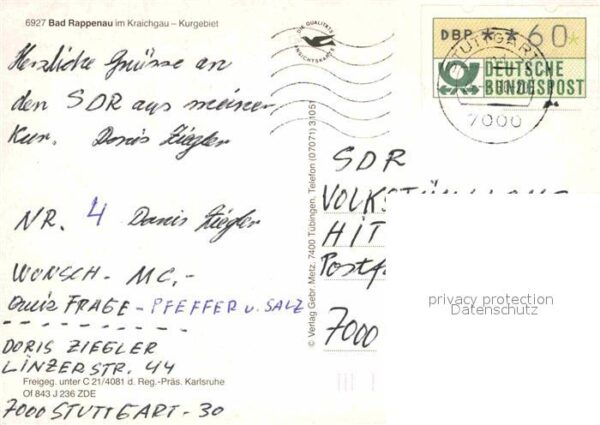 6927 Bad Rappenau im Kraichgau – Kurgebiet
DIE QUALITÄTS
ANSICHTSKARTE
DBP ** 60*
DEUTSCHE
BUNDESPOST
STUTTGART
7000
Herzliche Grüsse an
den SDR aus meiner
Kur. Doris Ziegler
NR. 4 Doris Ziegler
WUNSCH- MC,-
Quiz FRAGE - PFEFFER u. SALZ
DORIS ZIEGLER
LINZERSTR. 44
Freigeg. unter C 21/4081 d. Reg.-Präs. Karlsruhe
Of 843 J 236 ZDE
7000 STUTTGART - 30
© Verlag Gebr. Metz, 7400 Tübingen, Telefon (07071) 31051
SDR
HIT
Postf
7000
privacy protection
Datenschutz